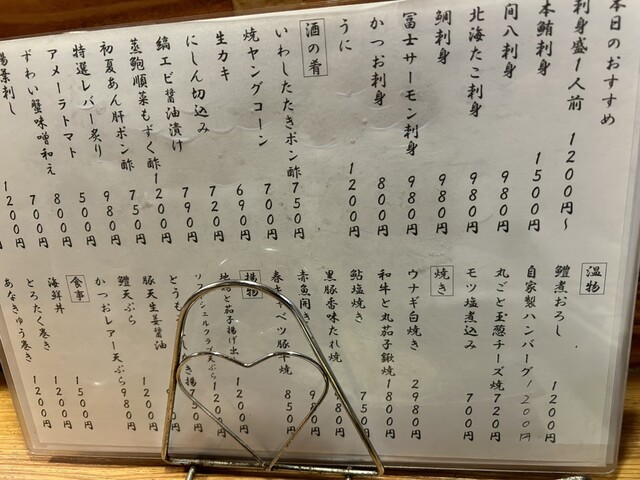 本日のおすすめ
刺身盛1人前 1200円〜
本鮪刺身 1500円
間八刺身 980円
北海たこ刺身 980円
鯛刺身 980円
冨士サーモン刺身 980円
かつお刺身 800円
うに 1200円
酒の肴
いわしたたきポン酢 750円
焼ヤングコーン 700円
生カキ 690円
にしん切込み 720円
縞エビ醤油漬け 790円
蒸鮑順菜もずく酢 1200円
初夏あん肝ポン酢 750円
特選レバー炙り 980円
アメーラトマト 500円
ずわい蟹味噌和え 800円
湯葉刺し 700円
1200円
温物
鱧煮おろし 1200円
自家製ハンバーグ 1200円
丸ごと玉葱チーズ焼 720円
モツ塩煮込み 700円
焼き
ウナギ白焼き 2980円
和牛と丸茄子鍬焼 1800円
鮎塩焼き 750円
黒豚香味たれ焼 880円
赤魚開き 980円
春キャベツ豚平焼 850円
揚物
と茄子揚げ出 1200円
シェルクラブ天ぷら 1200円
とうも き揚 750円
豚天生姜醤油 1200円
鱧天ぷら 980円
かつおレアー天ぷら
食事
海鮮丼 1500円
とろたく巻き 1200円
あなきゅう巻き 1200円